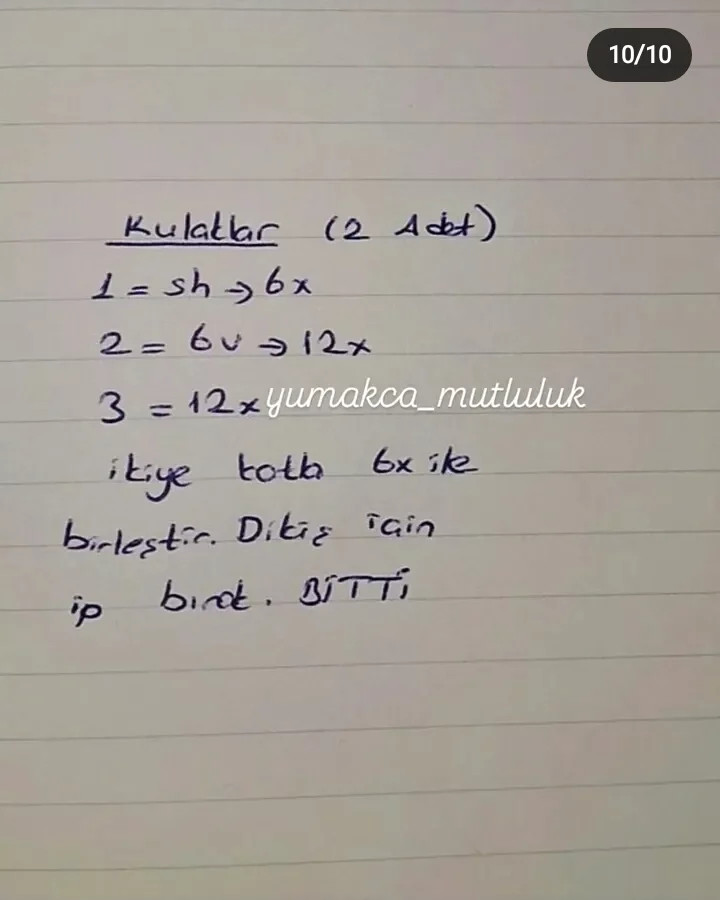 10/10
Kulaklar (2 Adet)
1 = sh → 6x
2 = 6v → 12x
3 = 12x yumakca_mutluluk
ikiye katla 6x ile
birleştir. Dikiş için
ip bırak. BİTTİ